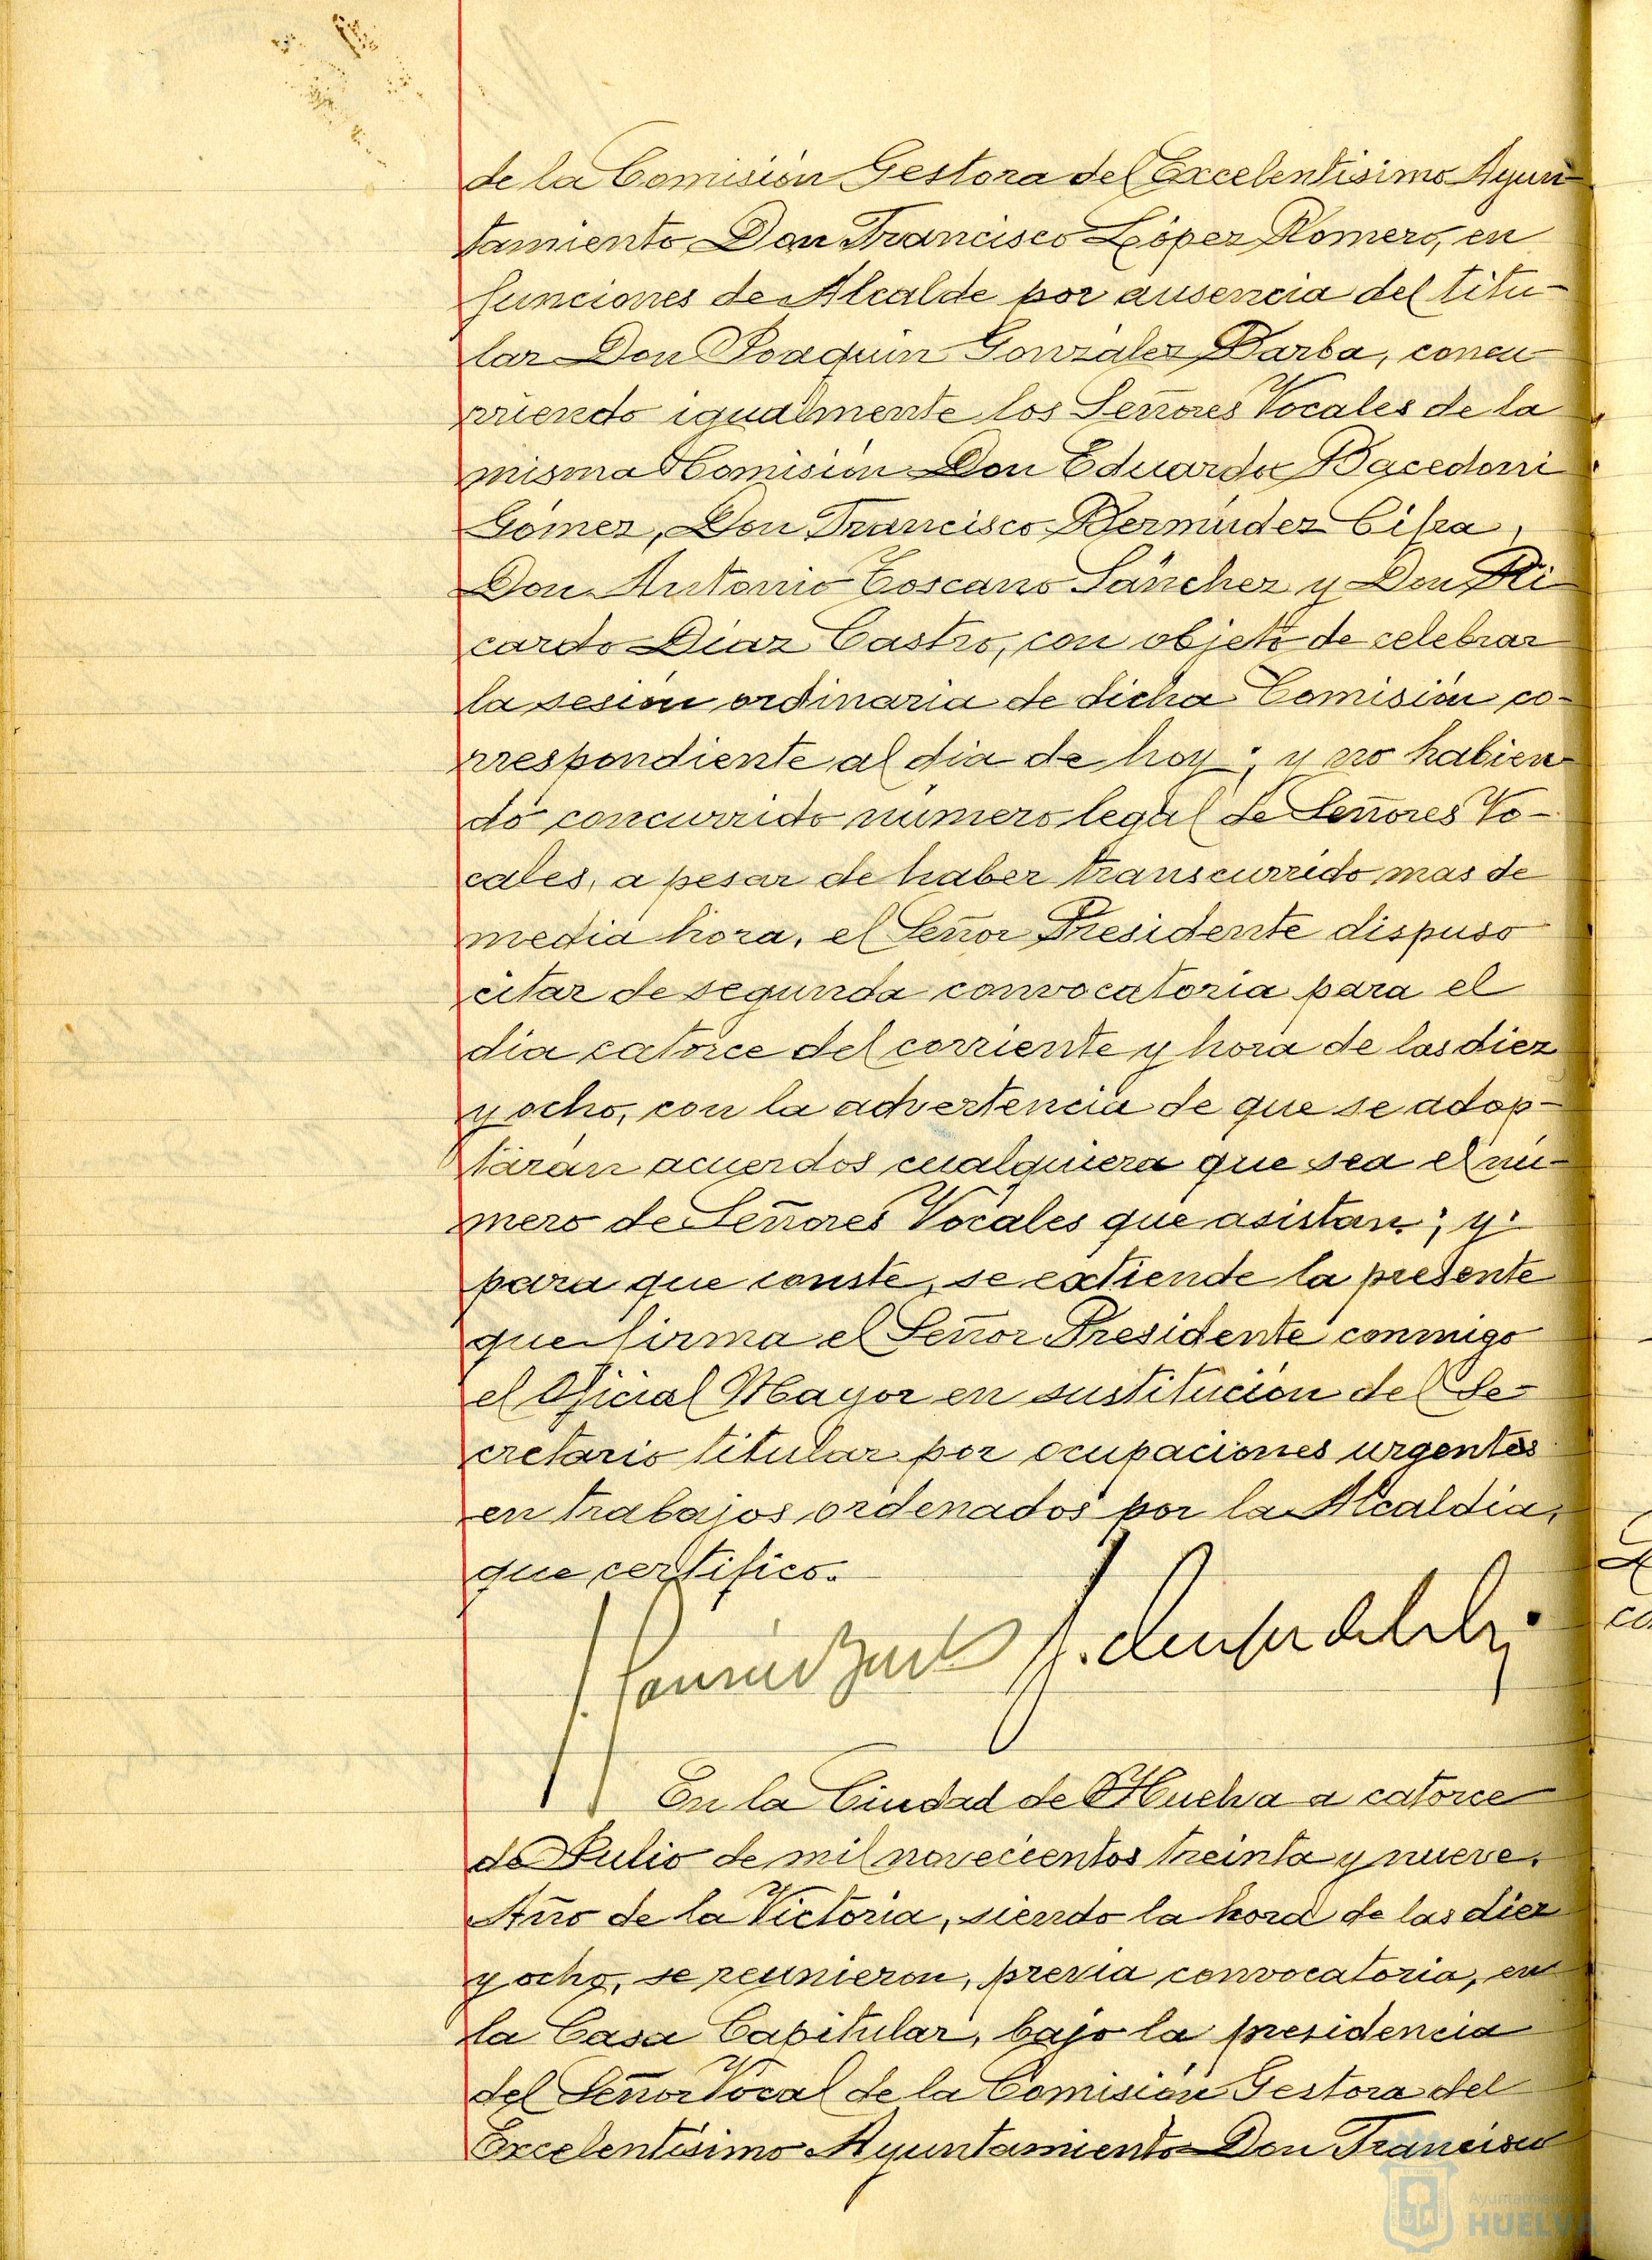 de la Comisión Gestora del Excelentisimo Ayun
tamiento Don Francisco López Romero, en
funciones de Alcalde por ausencia del titu-
lar Don Joaquin González Barba, concu
rriendo igualmente los Señores Vocales de la
misma Comisión Don Eduardo Bacedoni
Gómez, Don Francisco Bermúdez Cifra,
Don Antonio Toscano Sánchez y Don Ri
cardo Diaz Castro, con objeto de celebrar
la sesión ordinaria de dicha Comisión co-
rrespondiente al dia de hoy; y no habien
do concurrido número legal de Señores Vo-
cales, a pesar de haber transcurrido mas de
media hora, el Señor Presidente dispuso
citar de segunda convocatoria para el
dia catorce del corriente y hora de las diez
y ocho, con la advertencia de que se adop-
tarán acuerdos cualquiera que sea el nú-
mero de Señores Vocales que asistan; y
para que conste, se extiende la presente
que firma el Señor Presidente conmigo
el Oficial Mayor en sustitución del Se-
cretario titular por ocupaciones urgentes
en trabajos ordenados por la Alcaldia,
que certifico.
En la Ciudad de Huelva a catorce
de Julio de mil novecientos treinta y nueve.
Año de la Victoria, siendo la hora de las diez
y ocho, se reunieron, previa convocatoria, en
la Casa Capitular, bajo la presidencia
del Señor Vocal de la Comisión Gestora del
Excelentísimo Ayuntamiento Don Francisco
Ayuntamiento
HUELVA